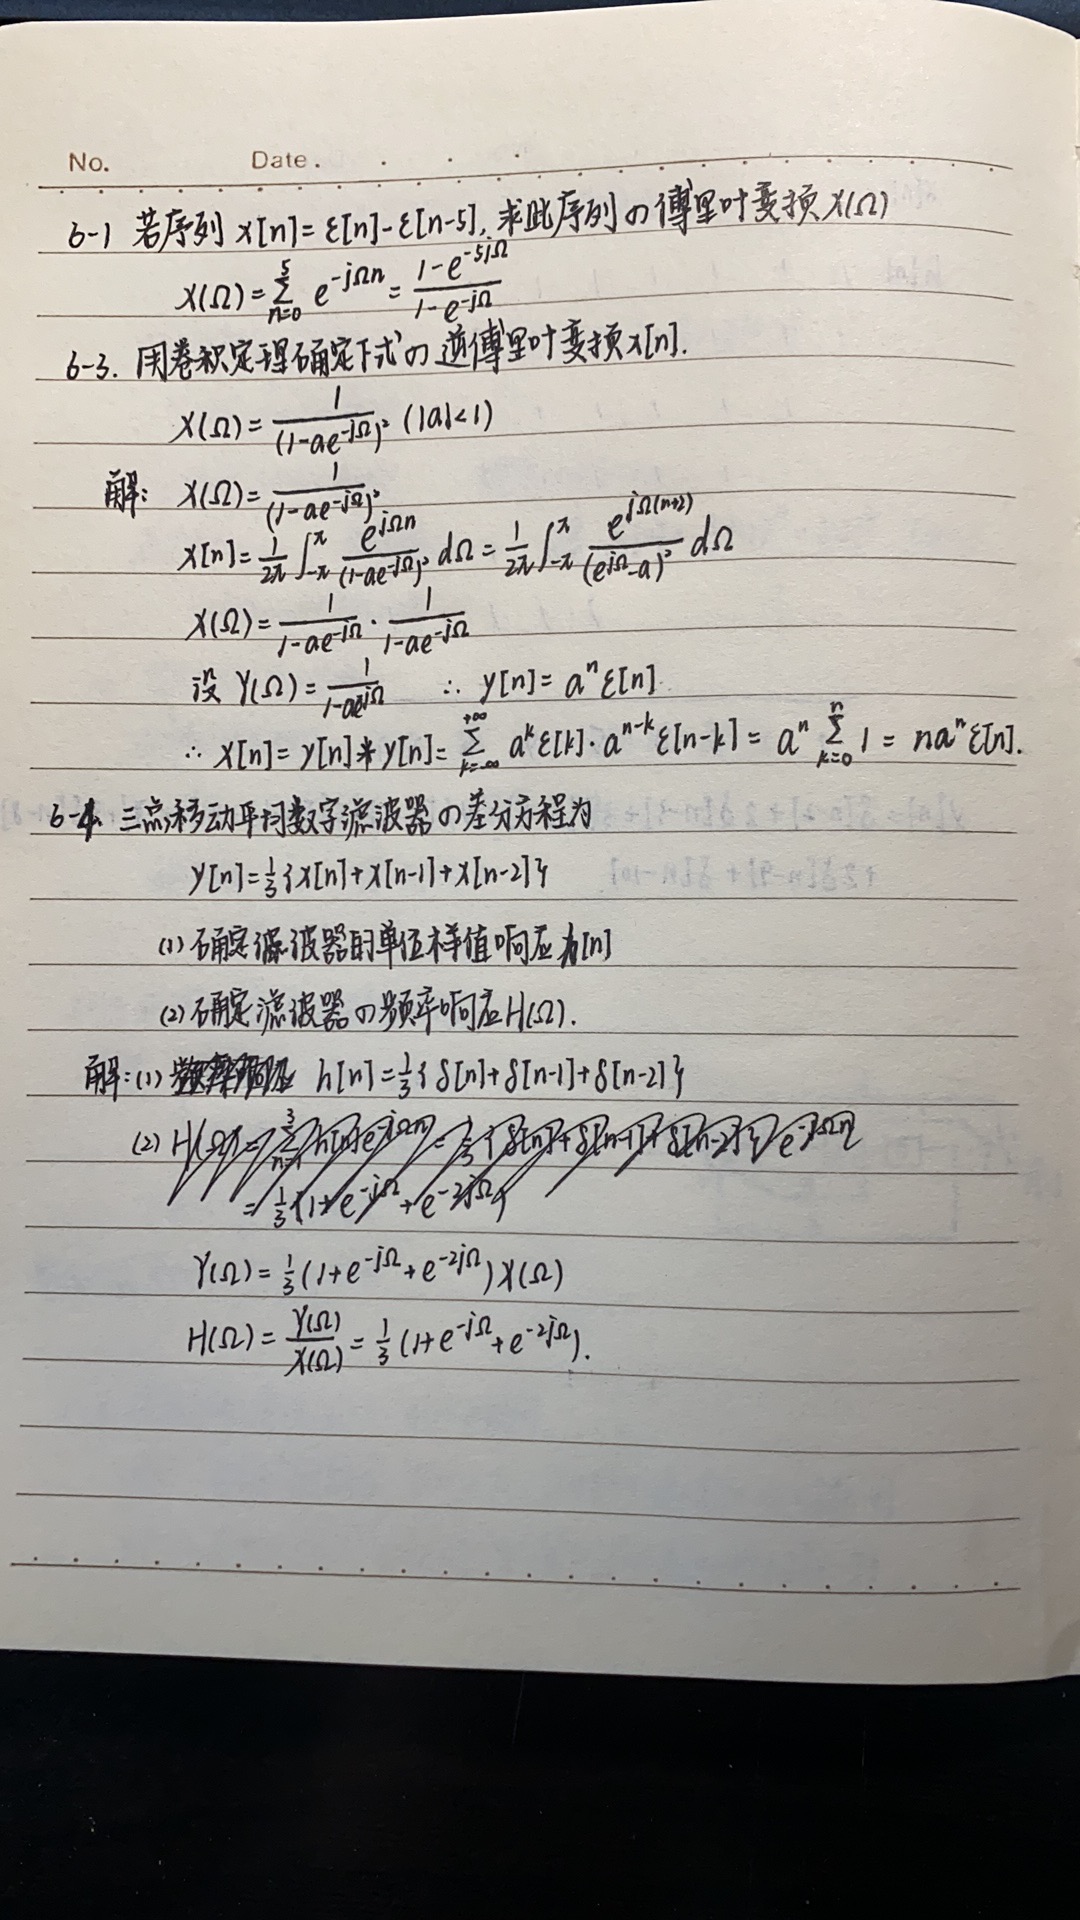 No. Date.
6-1 若序列 x[n]=ε[n]-ε[n-5],求此序列の傅里叶变换X(Ω)
X(Ω)=∑_{n=0}^{5} e^{-jΩn}=\frac{1-e^{-5jΩ}}{1-e^{-jΩ}}
6-3. 用卷积定理确定下式の逆傅里叶变换x[n].
X(Ω)=\frac{1}{(1-ae^{-jΩ})^2} (|a|<1)
解: X(Ω)=\frac{1}{(1-ae^{-jΩ})^2}
x[n]=\frac{1}{2π}∫_{-π}^{π}\frac{e^{jΩn}}{(1-ae^{-jΩ})^2}dΩ=\frac{1}{2π}∫_{-π}^{π}\frac{e^{jΩ(n+2)}}{(e^{jΩ}-a)^2}dΩ
X(Ω)=\frac{1}{1-ae^{-jΩ}}·\frac{1}{1-ae^{-jΩ}}
设 Y(Ω)=\frac{1}{1-ae^{-jΩ}} ∴ y[n]=a^nε[n].
∴ x[n]=y[n]*y[n]=∑_{k=-∞}^{+∞} a^kε[k]·a^{n-k}ε[n-k]=a^n∑_{k=0}^{n}1=na^nε[n].
6-4. 三点移动平均数字滤波器の差分方程为
y[n]=\frac{1}{3}{x[n]+x[n-1]+x[n-2]}
(1)确定滤波器的单位样值响应h[n]
(2)确定滤波器の频率响应H(Ω).
解:(1) h[n]=\frac{1}{3}{δ[n]+δ[n-1]+δ[n-2]}
(2) H(Ω)=∑_{n=1}^{3}h[n]e^{-jΩn}=\frac{1}{3}{δ[n]+δ[n-1]+δ[n-2]}e^{-jΩn}
=\frac{1}{3}(1+e^{-jΩ}+e^{-2jΩ})
Y(Ω)=\frac{1}{3}(1+e^{-jΩ}+e^{-2jΩ})X(Ω)
H(Ω)=\frac{Y(Ω)}{X(Ω)}=\frac{1}{3}(1+e^{-jΩ}+e^{-2jΩ}).